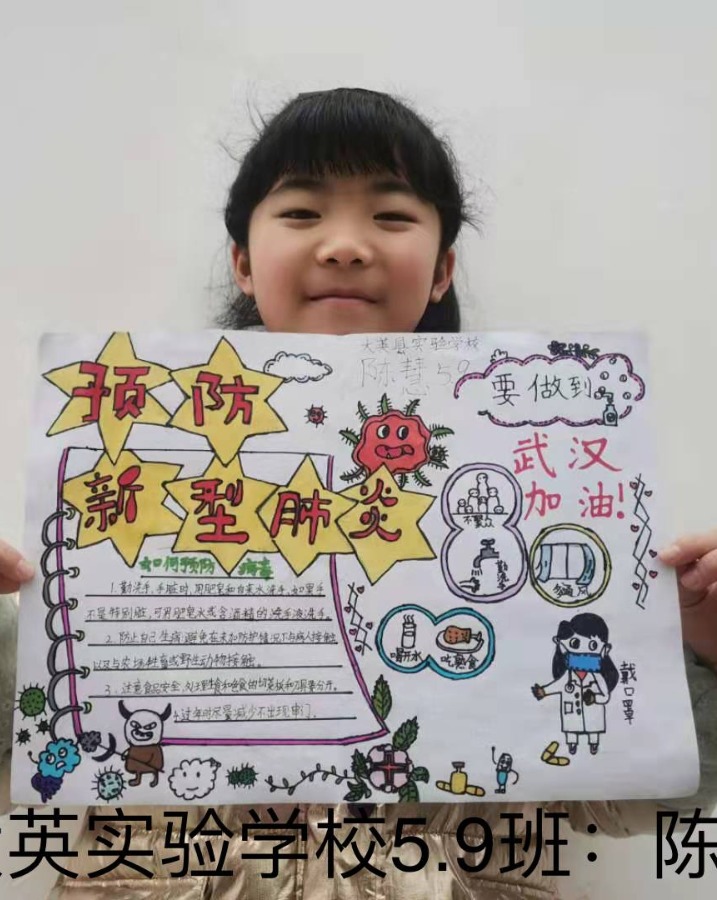 大英县实验学校
陈慧 5.9
预防
新型肺炎
要做到
武汉
加油!
如何预防 病毒
1.勤洗手,手脏时,用肥皂和自来水洗手,如果手
不是特别脏,可用肥皂水或含酒精的洗手液洗手。
2.防止自己生病:避免在未加防护情况下与病人接触
以及与农场牲畜或野生动物接触。
3.注意食品安全,处理生食和熟食的切菜板和刀具要分开。
4.过年时尽量减少不出现串门。
不聚众
勤洗手
多通风
喝开水
吃熟食
戴口罩
英实验学校5.9班：陈